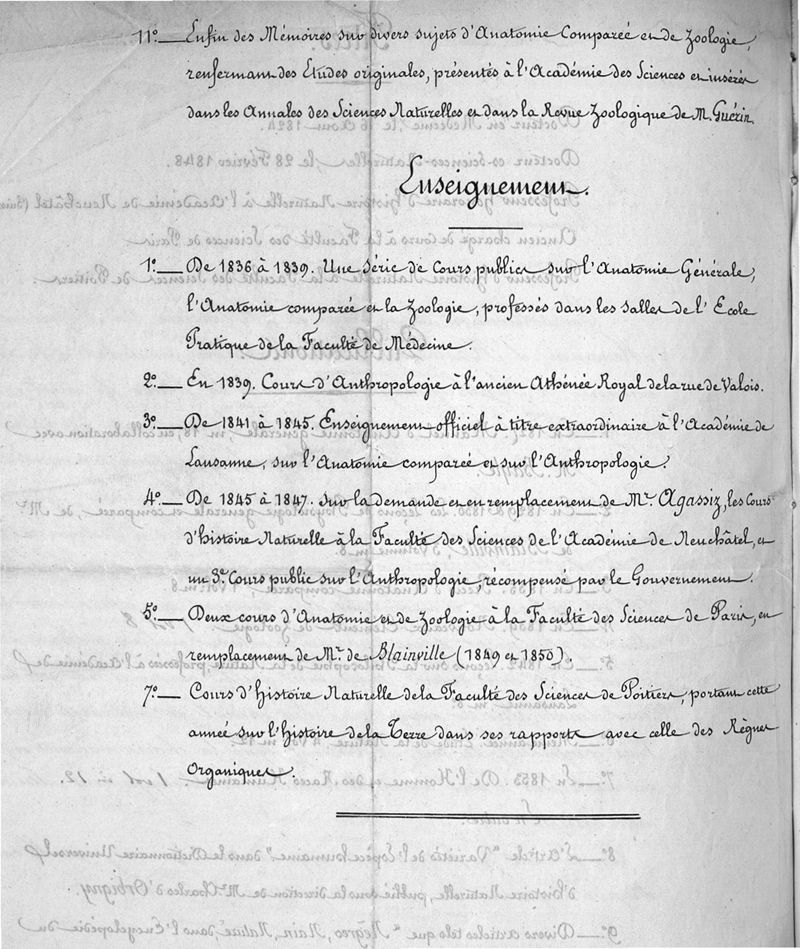 11º — Enfin des Mémoires sur divers sujets d'Anatomie Comparée et de Zoologie,
renfermant des Etudes originales, présentés à l'Académie des Sciences et insérés
dans les Annales des Sciences Naturelles et dans la Revue Zoologique de M. Guérin.
Enseignement.
1º — De 1836 à 1839. Une Série de Cours publics sur l'Anatomie Générale,
l'Anatomie comparée et la Zoologie, professés dans les Salles de l'Ecole
Pratique de la Faculté de Médecine.
2º — En 1839. Cours d'Anthropologie à l'ancien Athénée Royal de la rue de Valois.
3º — De 1841 à 1845. Enseignement officiel à titre extraordinaire à l'Académie de
Lausanne, sur l'Anatomie comparée et sur l'Anthropologie.
4º — De 1845 à 1847. Sur la demande et en remplacement de Mr. Agassiz, les Cours
d'histoire Naturelle à la Faculté des Sciences de l'Académie de Neuchâtel, et
un 3e. Cours public sur l'Anthropologie, récompensé par le Gouvernement.
5º — Deux cours d'Anatomie et de Zoologie à la Faculté des Sciences de Paris, en
remplacement de Mr. de Blainville (1849 et 1850).
7º — Cours d'Histoire Naturelle de la Faculté des Sciences de Poitiers, portant cette
année sur l'histoire de la Terre dans ses rapports avec celle des Règnes
Organiques.